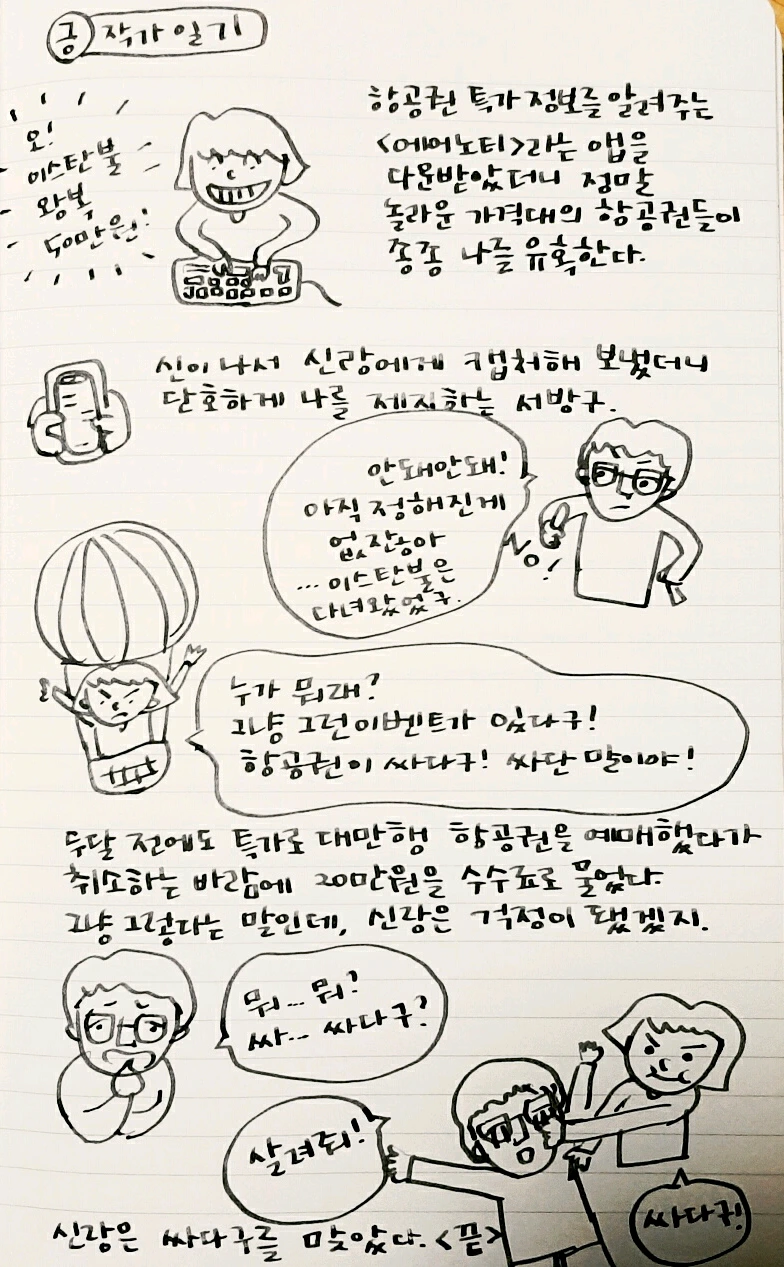 금 작가일기
오!
이스탄불
왕복
50만원!
항공권 특가 정보를 알려주는
<에어노티>라는 앱을
다운받았더니 정말
놀라운 가격대의 항공권들이
종종 나를 유혹한다.
신이나서 신랑에게 캡처해 보냈더니
단호하게 나를 제지하는 서방구.
안돼안돼!
아직 정해진게
없잖아
...이스탄불은
다녀왔었구.
No!
누가 뭐래?
그냥 그런이벤트가 있다구!
항공권이 싸다구! 싸단 말이야!
두달 전에도 특가로 대만행 항공권을 예매했다가
취소하는 바람에 20만원을 수수료로 물었다.
그냥 그렇다는 말인데, 신랑은 걱정이 됐겠지.
뭐... 뭐?
싸... 싸다구?
살려줘!
싸다구!
신랑은 싸다구를 맞았다. <끝>